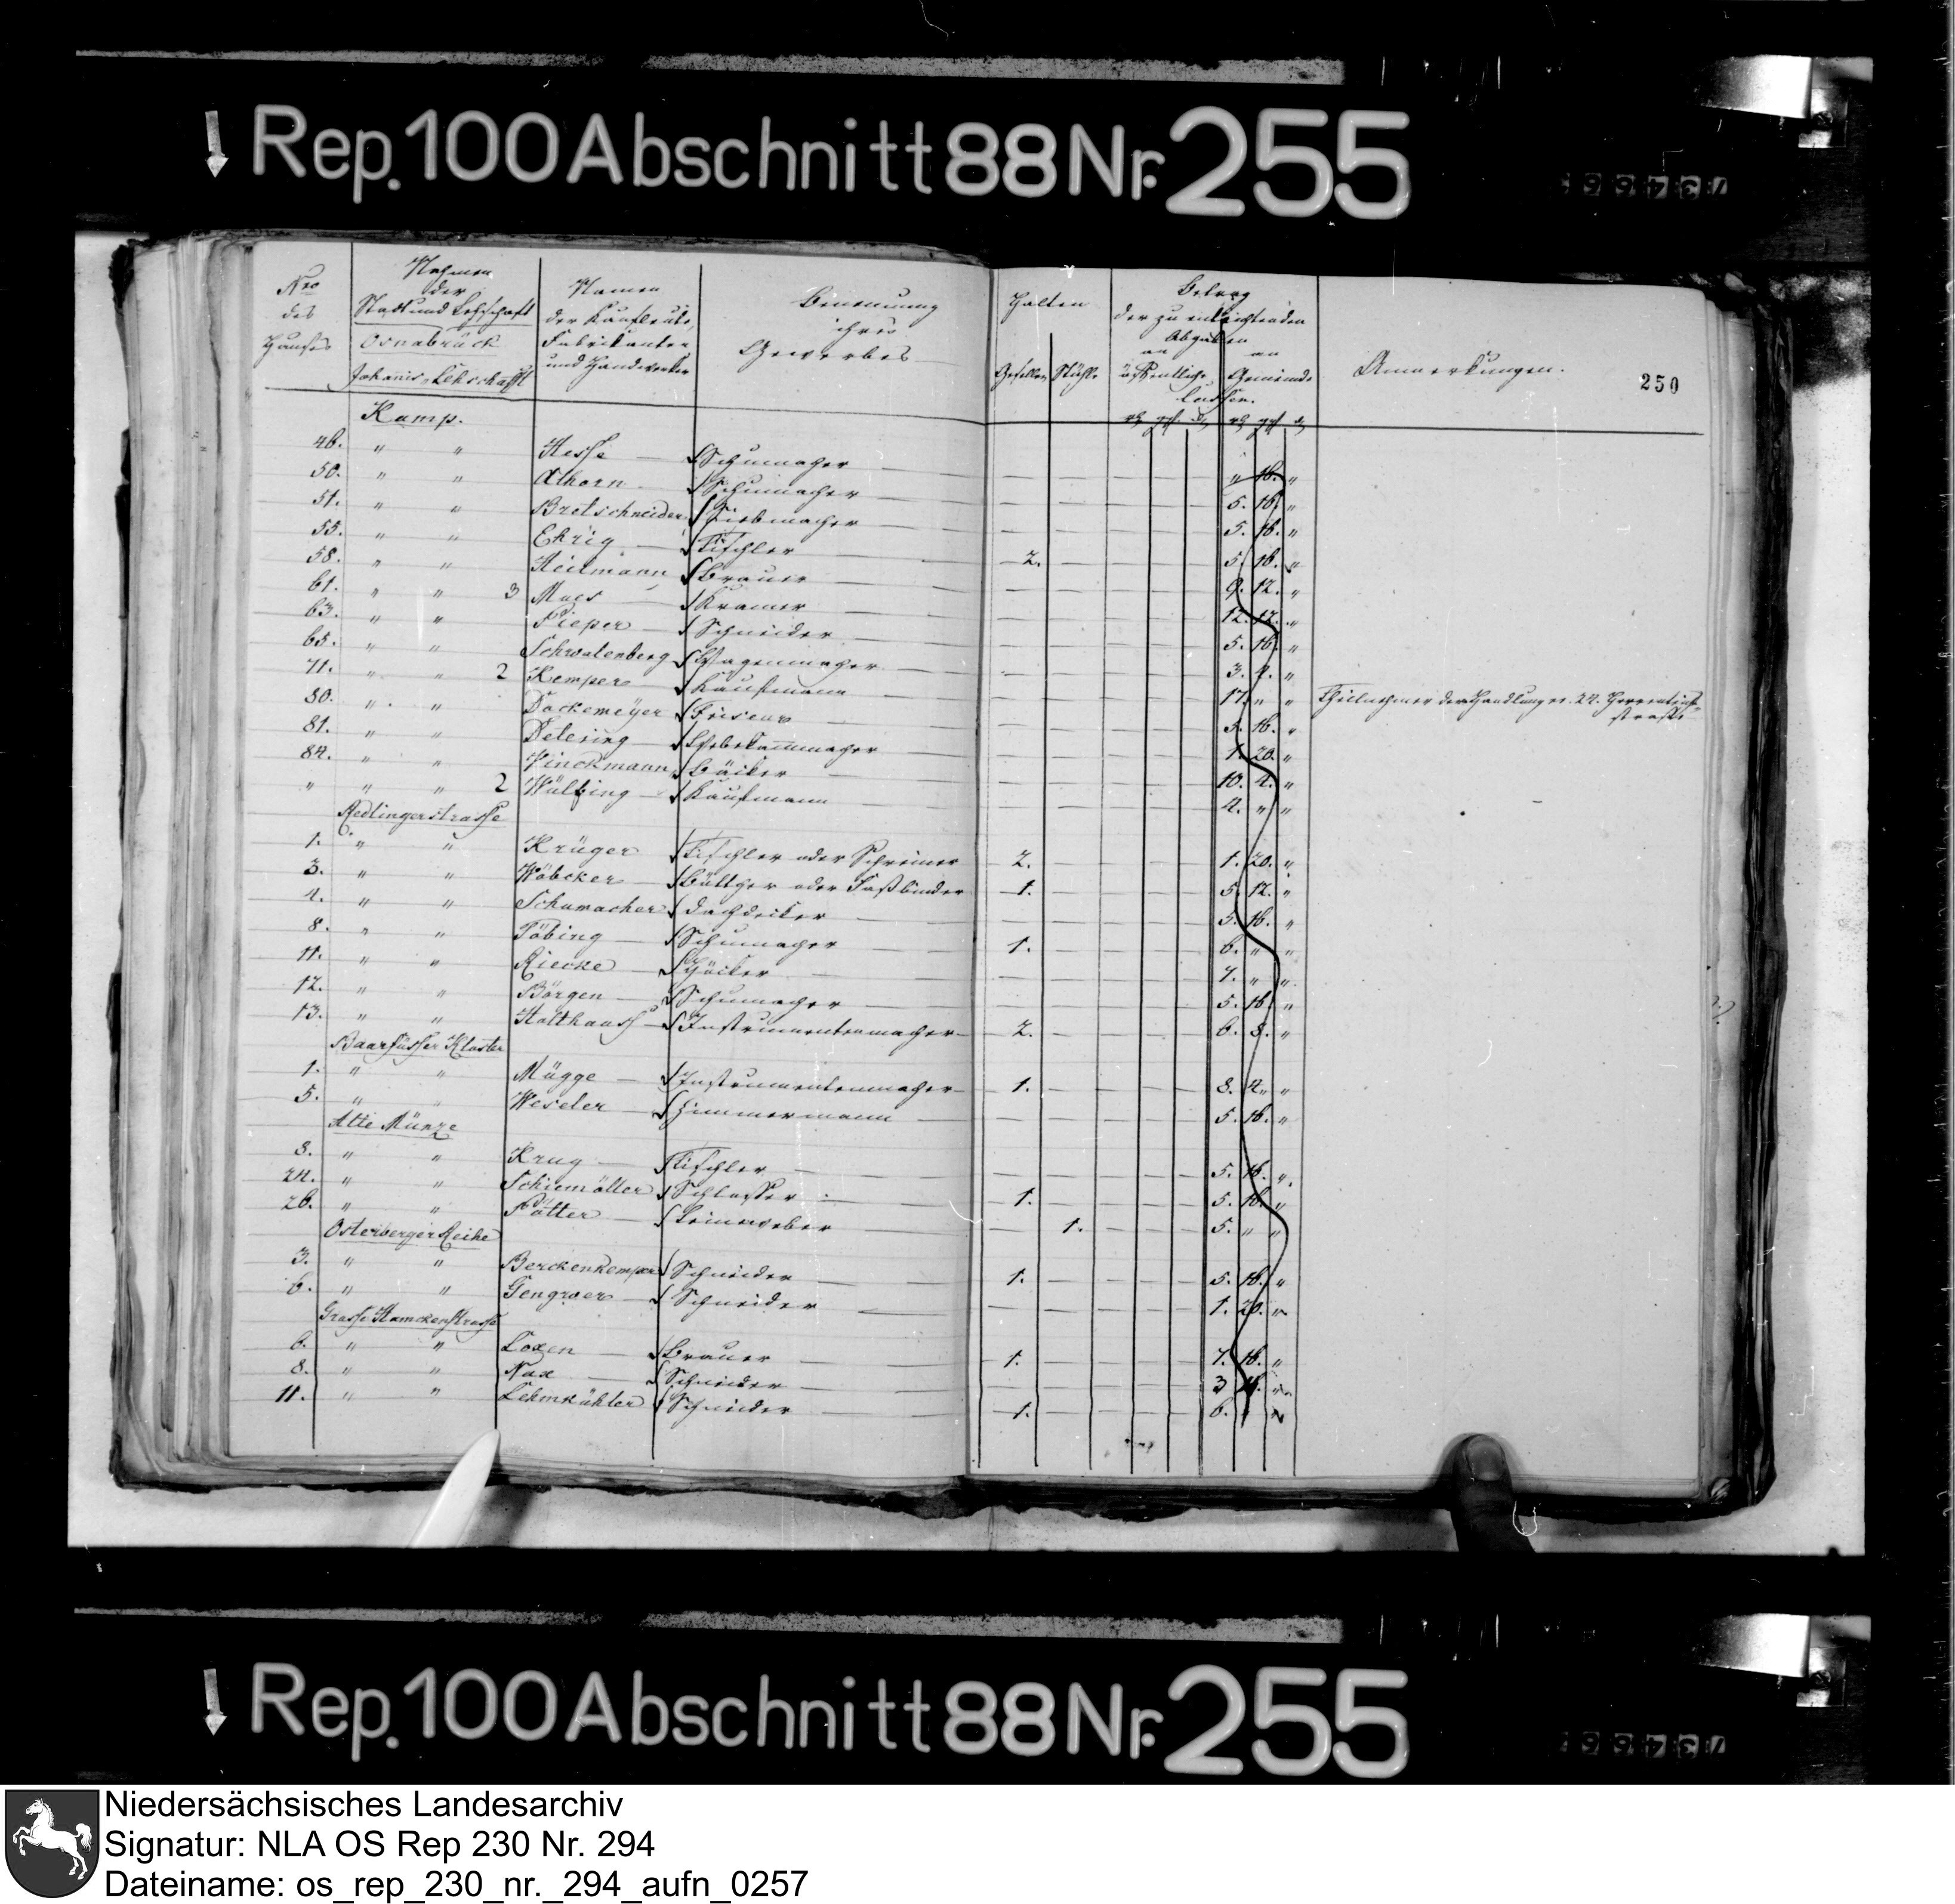 Rep. 100 Abschnitt 88 Nr. 255
Nro des Hauses
Nahmen der Stadt und Leischaft
Osnabrück
Johannis-Leischafft
Namen der Kaufleute, Fabrikanten und Handwerker
Benennung ihres Gewerbes
Halten
Gesellen Stühle
Betrag der zu entrichtenden Abgaben
an öffentliche an Gemeinde
Cassen.
Anmerkungen.
250
Kamp.
46. " " Hesse Schumacher " 16. "
50. " " Athorn Schumacher 5. 16. "
51. " " Bretschneider Siebmacher 5. 16. "
55. " " Ehrig Tischler 2. 5. 16. "
58. " " Heilmann Brauer 9. 12. "
61. " " 3 Maes Kramer 12. 12. "
63. " " Pieper Schneider 5. 16. "
65. " " Schwalenberg Wagenmacher 3. 4. "
71. " " 2 Kemper Kaufmann 17. " " Theilnehmer der Handlung nr. 24.
80. " " Dockemeyer Friseur 5. 16. "
81. " " Detering Webekammmacher 1. 20. "
84. " " Vinckmann Bäcker 10. 4. "
" " " 2 Wülfing Kaufmann 4. " "
Redlingerstrasse
1. " " Krüger Tischler oder Schreiner 2. 1. 20. "
3. " " Wöbcker Böttger oder Faßbinder 1. 5. 12. "
4. " " Schumacher Dachdecker 5. 16. "
8. " " Töbing Schumacher 1. 6. " "
11. " " Riecke Höcker 7. " "
12. " " Börgen Schumacher 5. 16. "
13. " " Holthaus Instrumentenmacher 2. 6. 8. "
Baarfüsser Kloster
1. " " Mügge Instrumentenmacher 1. 8. 4. "
5. " " Weseler Zimmermann 5. 16. "
Alte Münze
8. " " Krug Tischler 5. 16. "
24. " " Schiemöller Schlosser 1. 5. 16. "
26. " " Pötter Leineweber 1. 5. " "
Osterberger Reihe
3. " " Berckenkemper Schneider 1. 5. 16. "
6. " " Gengroer Schneider 1. 20. "
Grosse Hamckenstrasse
6. " " Loxen Brauer 1. 7. 16. "
8. " " Nax Schneider 3 16. "
11. " " Lehmkühler Schneider 1. 6. " "
Rep. 100 Abschnitt 88 Nr. 255
Niedersächsisches Landesarchiv
Signatur: NLA OS Rep 230 Nr. 294
Dateiname: os_rep_230_nr._294_aufn_0257